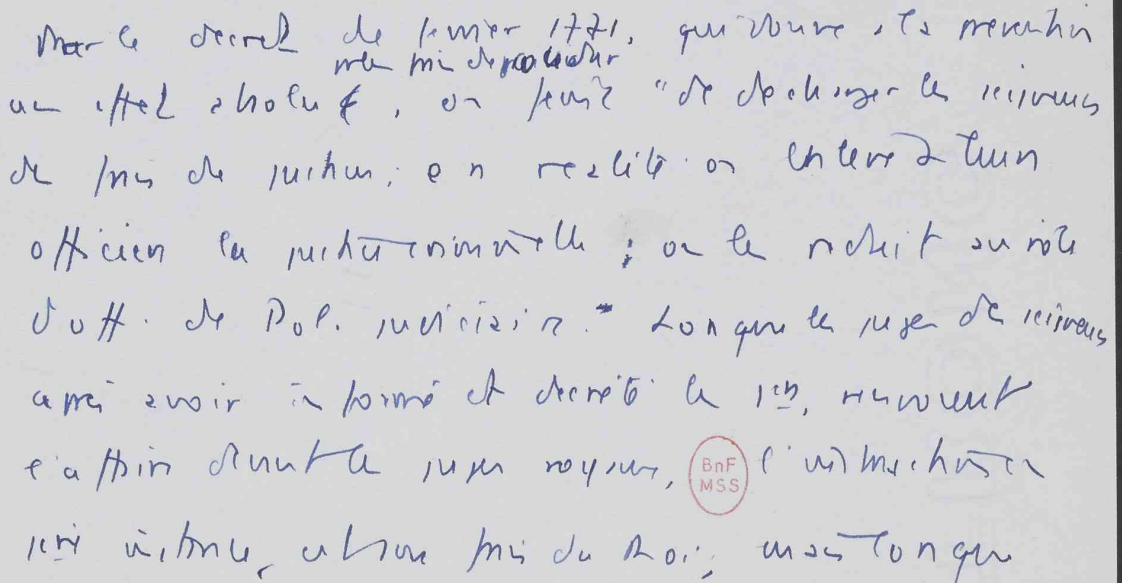 Par le decret de fevrier 1771, qui donne à la prevention
un effet absolu, on feint "de decharger les seigneurs
des frais de justice; en realité on enleve à leurs
officiers la justice criminelle; on les reduit au rôle
d'off. de Pol. judiciaire." Lorsque les juges des seigneurs
après avoir informé et decrété les 1ers, renvoient
l'affaire devant les juges royaux, l'instruction en
1ere instance, est aux frais du Roi; mais lorsque
BnF
MSS